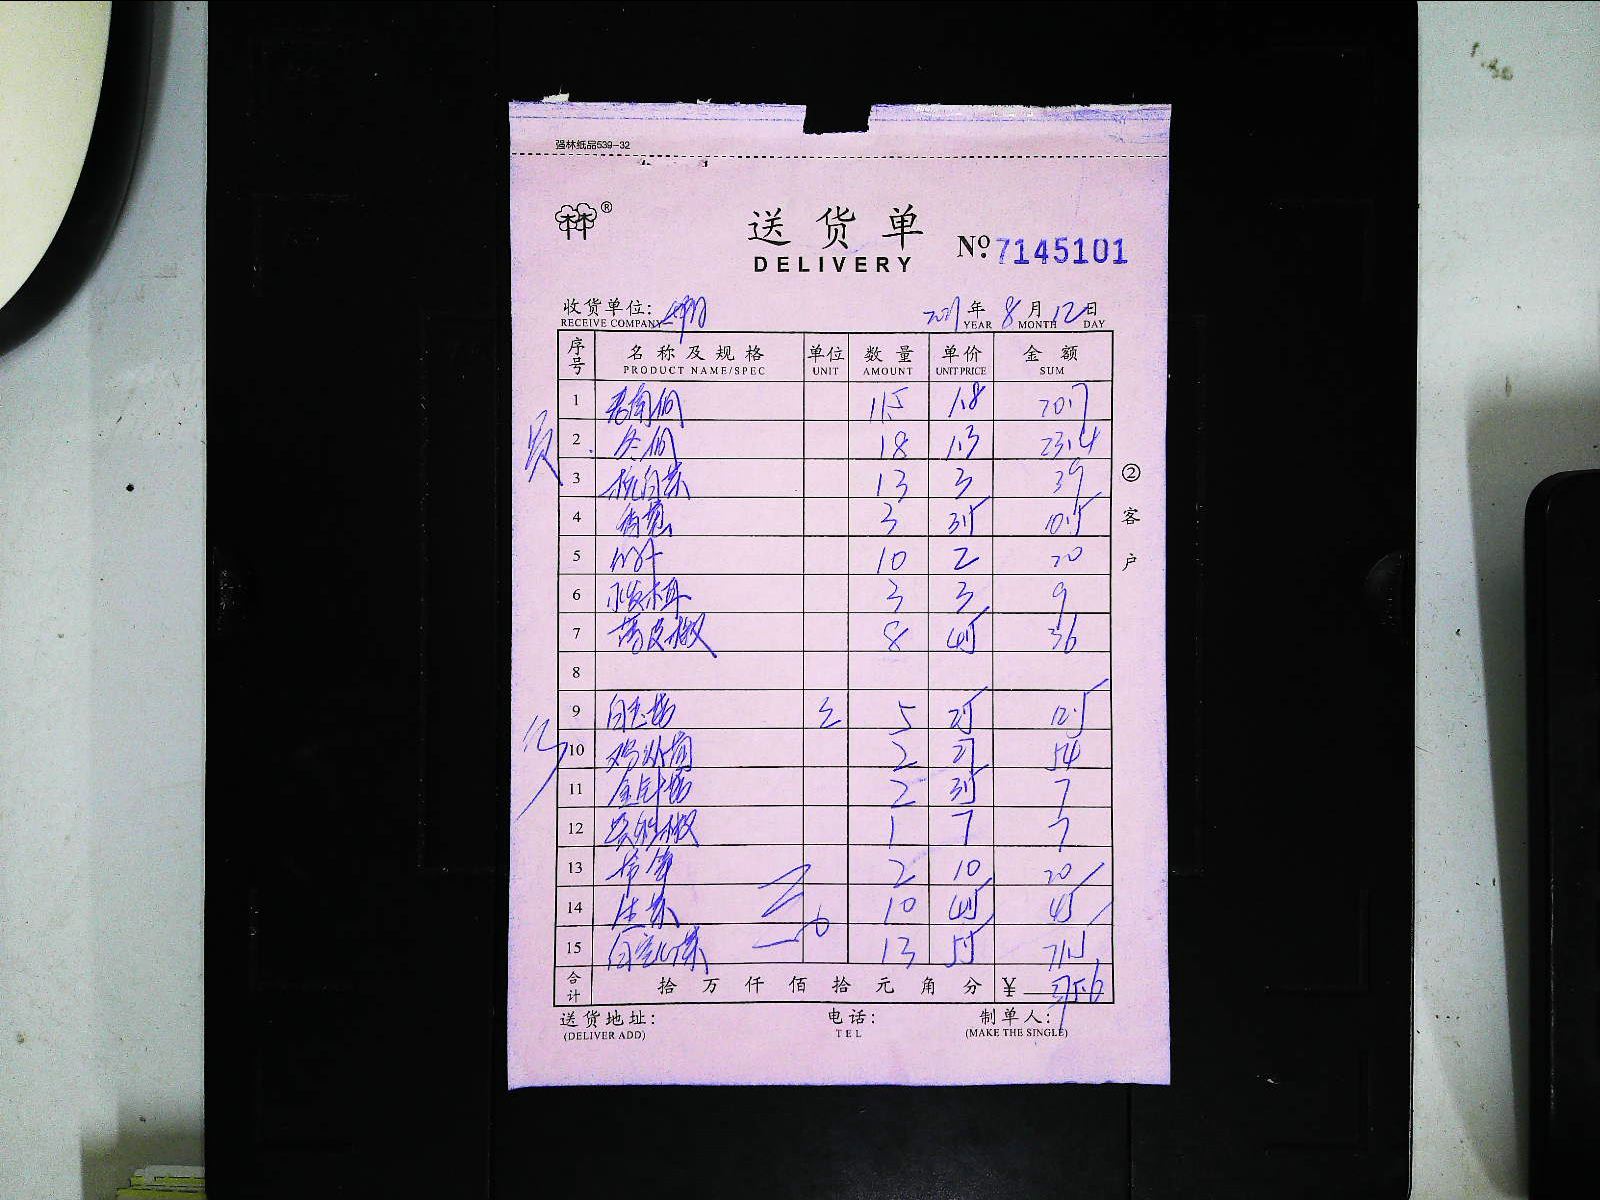 强林纸品539-32
林林®
送货单
DELIVERY
№ 7145101
收货单位:
RECEIVE COMPANY
2021年 8月 12日
YEAR MONTH DAY
序号 名称及规格 单位 数量 单价 金额
PRODUCT NAME/SPEC UNIT AMOUNT UNIT PRICE SUM
1 老南瓜 11.5 1.8 20.7
2 冬瓜 18 1.3 23.4
3 杭白菜 13 3 39
4 香葱 3 3.5 10.5
5 10 2 20
6 水发木耳 3 3 9
7 薄皮椒 8 4.5 36
8
9 白玉菇 5 2.5 12.5
10 2 27 54
11 金针菇 2 3.5 7
12 1 7 7
13 2 10 20
14 生菜 10 4.5 45
15 白空心菜 13 5.5 71.5
合计 拾 万 仟 佰 拾 元 角 分 ¥ 375.6
②客户
送货地址: 电话: 制单人:
(DELIVER ADD) TEL (MAKE THE SINGLE)